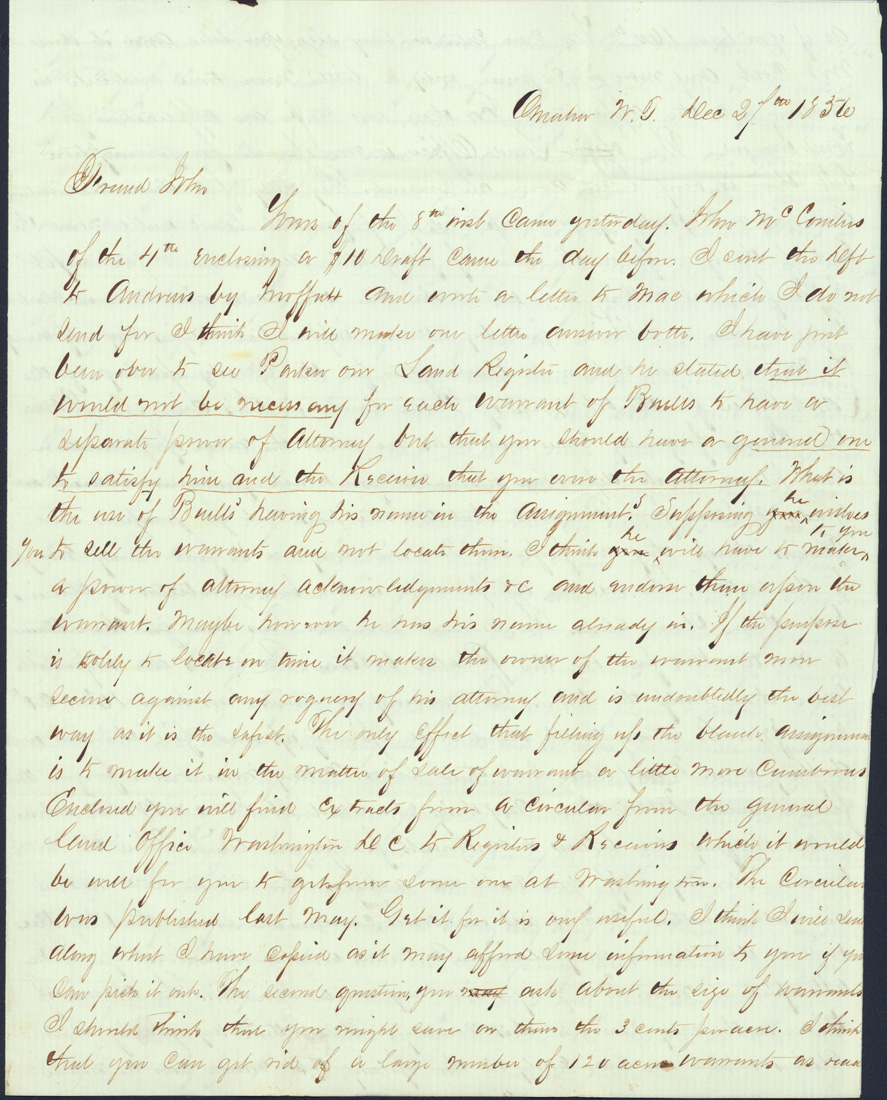 Omaha N. T. Dec 27th 1856
Friend John
Yours of the 8th inst came yesterday. John McConihes
of the 4th enclosing a $10 draft came the day before. I sent the dft
to Andrews by Moffatt and wrote a letter to Mac which I do not
send for I think I will make one letter answer both. I have just
been over to see Parker our Land Register and he stated that it
would not be necessary for each warrant of Buells to have a
separate power of Attorney but that you should have a general one
to satisfy him and the Receiver that you were the attorney. What is
the use of Buell's having his name in the assignments. Supposing he wishes
you to sell the warrants and not locate them. I think he will have to make to you
a power of attorney acknowledgments &c and endorse them upon the
warrant. Maybe however he has his name already in. If the purpose
is solely to locate on time it makes the owner of the warrant more
secure against any roguery of his attorney and is undoubtedly the best
way as it is the safest. The only effect that filling up the blank assignment
is to make it in the matter of sale of warrant a little more cumbrous
Enclosed you will find extracts from a circular from the general
land Office Washington D C to Registers & Receivers which it would
be well for you to get from some one at Washington. The Circular
was published last May. Get it for it is very useful. I think I will send
along what I have copied as it may afford some information to you if you
can pick it out. The second question, you ask about the size of warrants
I should think that you might save on them the 3 cents per acre. I think
that you can get rid of a large number of 120 acre warrants as